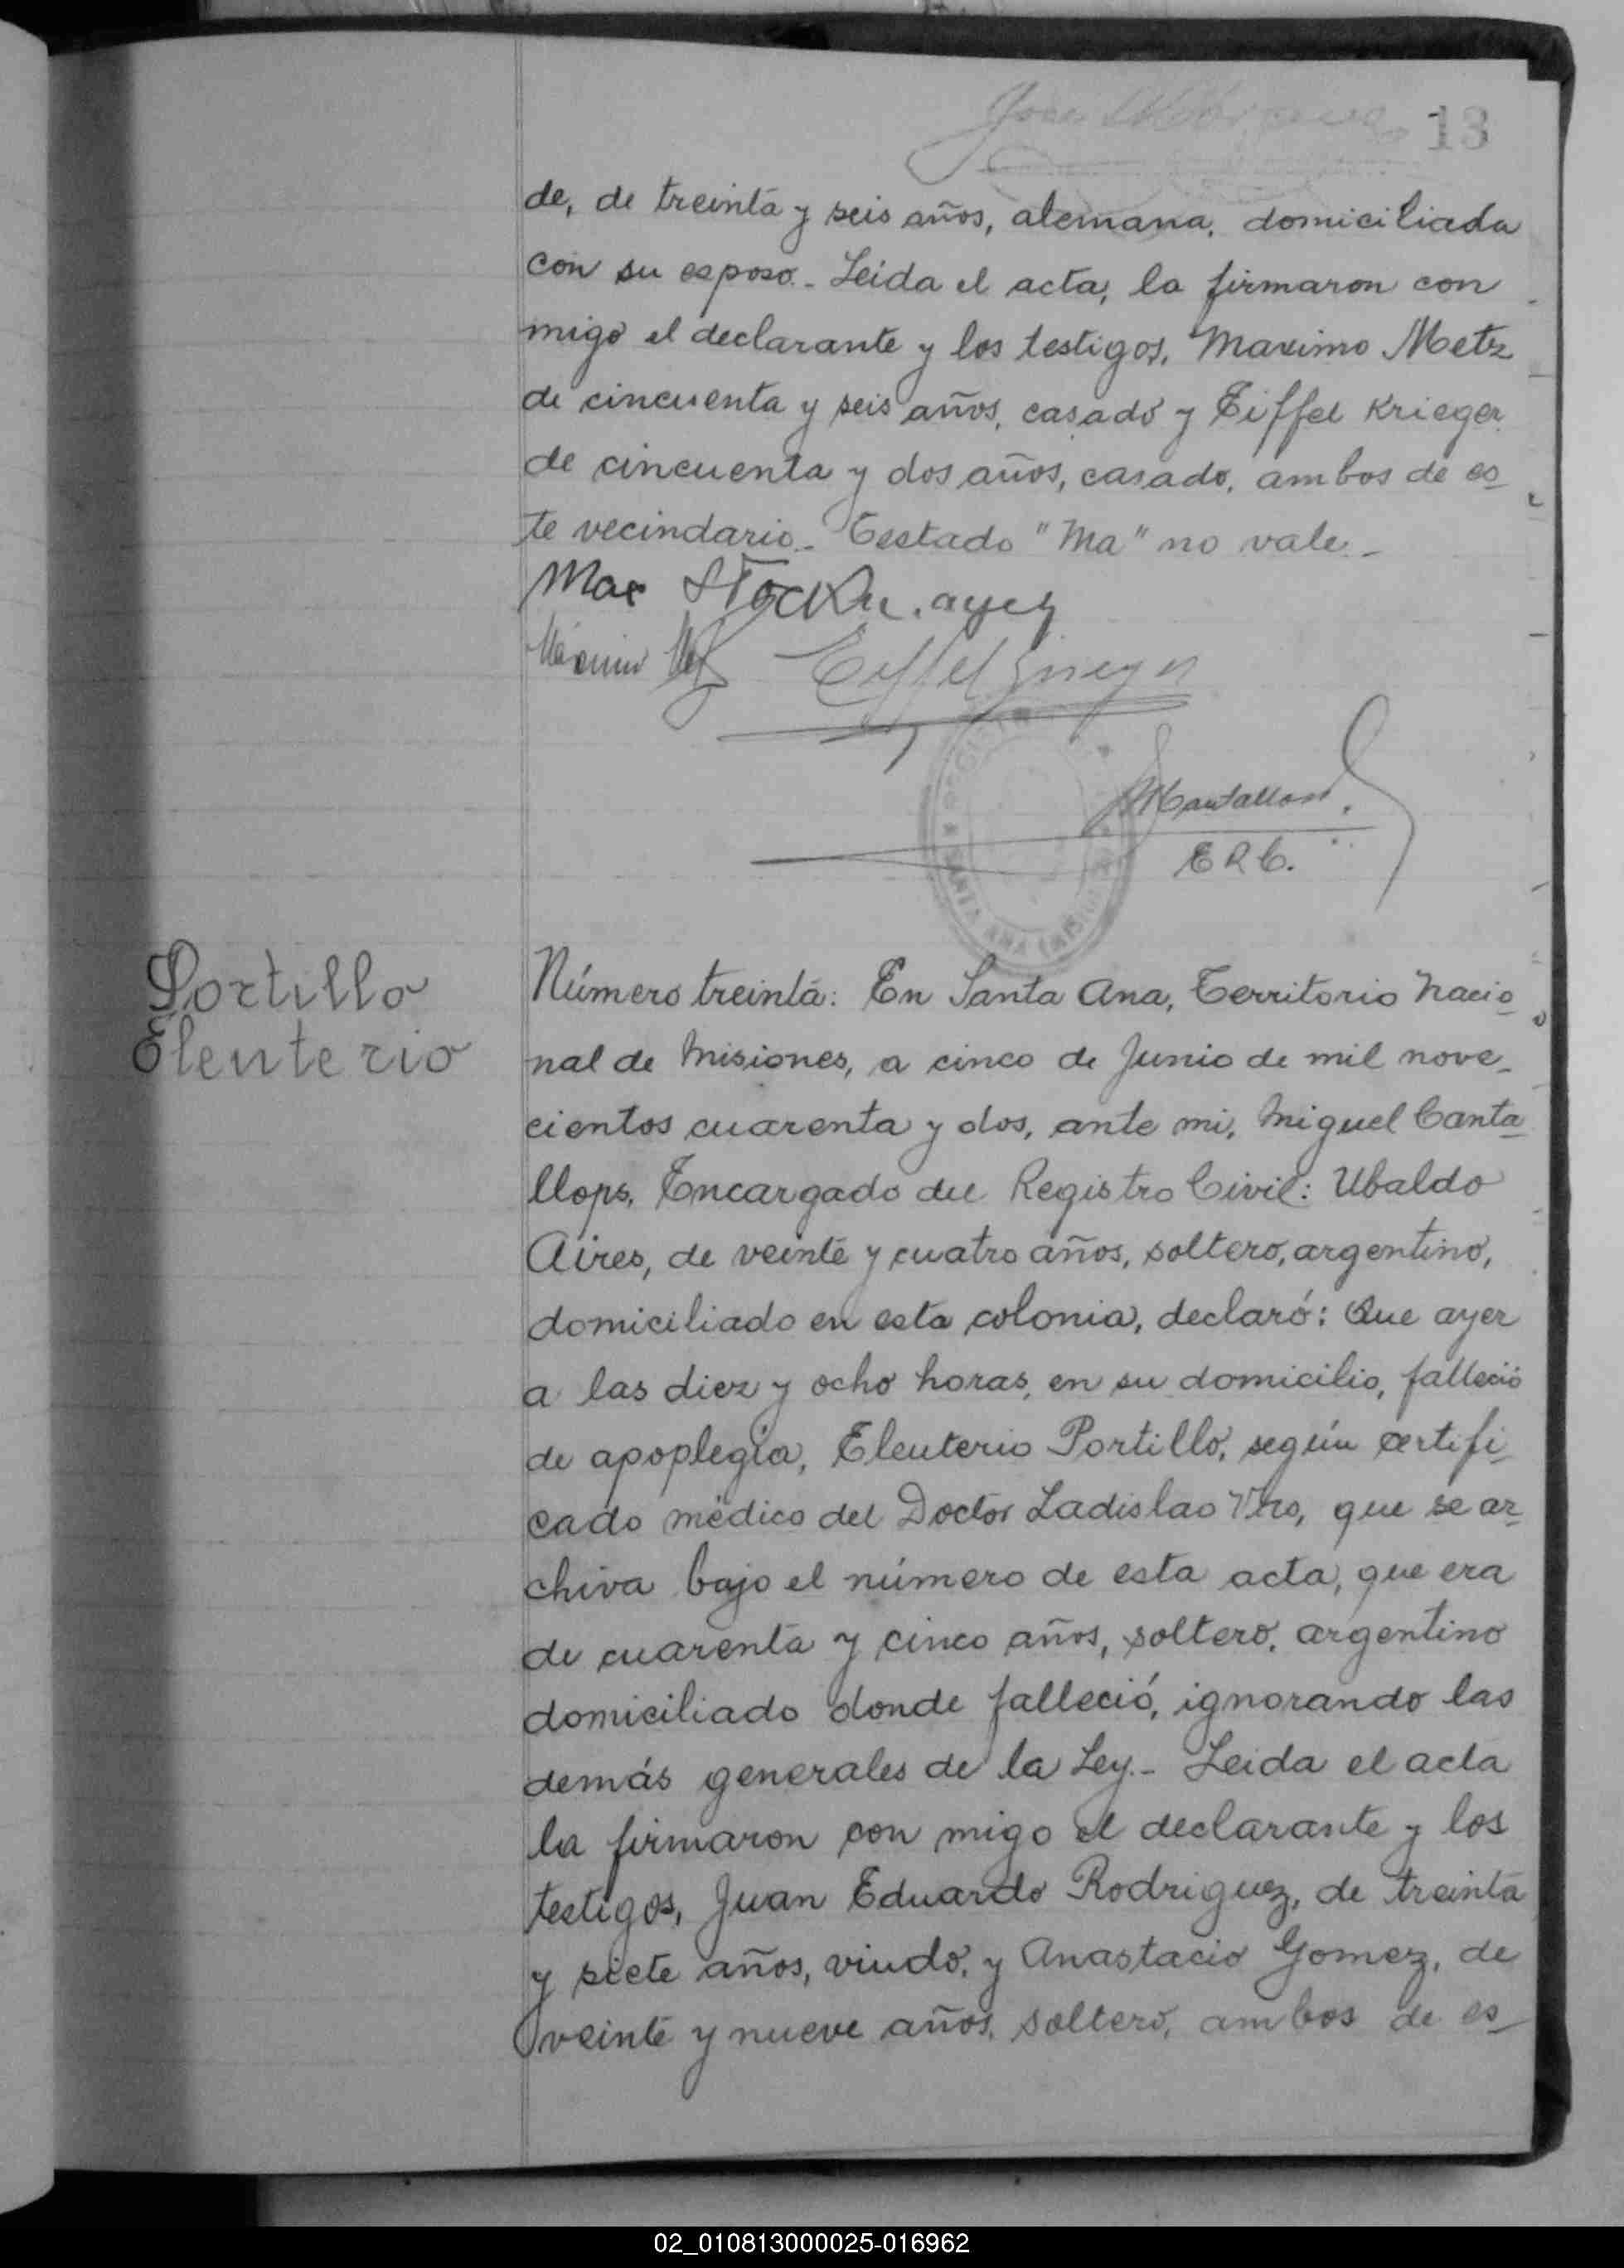 13
de, de treinta y seis años, alemana, domiciliada
con su esposo.- Leida el acta, la firmaron con
migo el declarante y los testigos, Maximo Metz
de cincuenta y seis años, casado y Eiffel Krieger
de cincuenta y dos años, casado, ambos de es_
te vecindario.- Testado "Ma" no vale.-
Max
Eiffel
ERC.
Portillo
Eleuterio
Número treinta: En Santa Ana, Territorio Nacio_
nal de Misiones, a cinco de Junio de mil nove_
cientos cuarenta y dos, ante mi, Miguel Canta_
llops, Encargado del Registro Civil: Ubaldo
Aires, de veinte y cuatro años, soltero, argentino,
domiciliado en esta colonia, declaró: Que ayer
a las diez y ocho horas, en su domicilio, falleció
de apoplegia, Eleuterio Portillo, según certifi_
cado médico del Doctor Ladislao que se ar_
chiva bajo el número de esta acta, que era
de cuarenta y cinco años, soltero, argentino
domiciliado donde falleció, ignorando las
demás generales de la Ley.- Leida el acta
la firmaron con migo el declarante y los
testigos, Juan Eduardo Rodriguez, de treinta
y siete años, viudo, y Anastacio Gomez, de
veinte y nueve años, soltero, ambos de es_
02_010813000025-016962